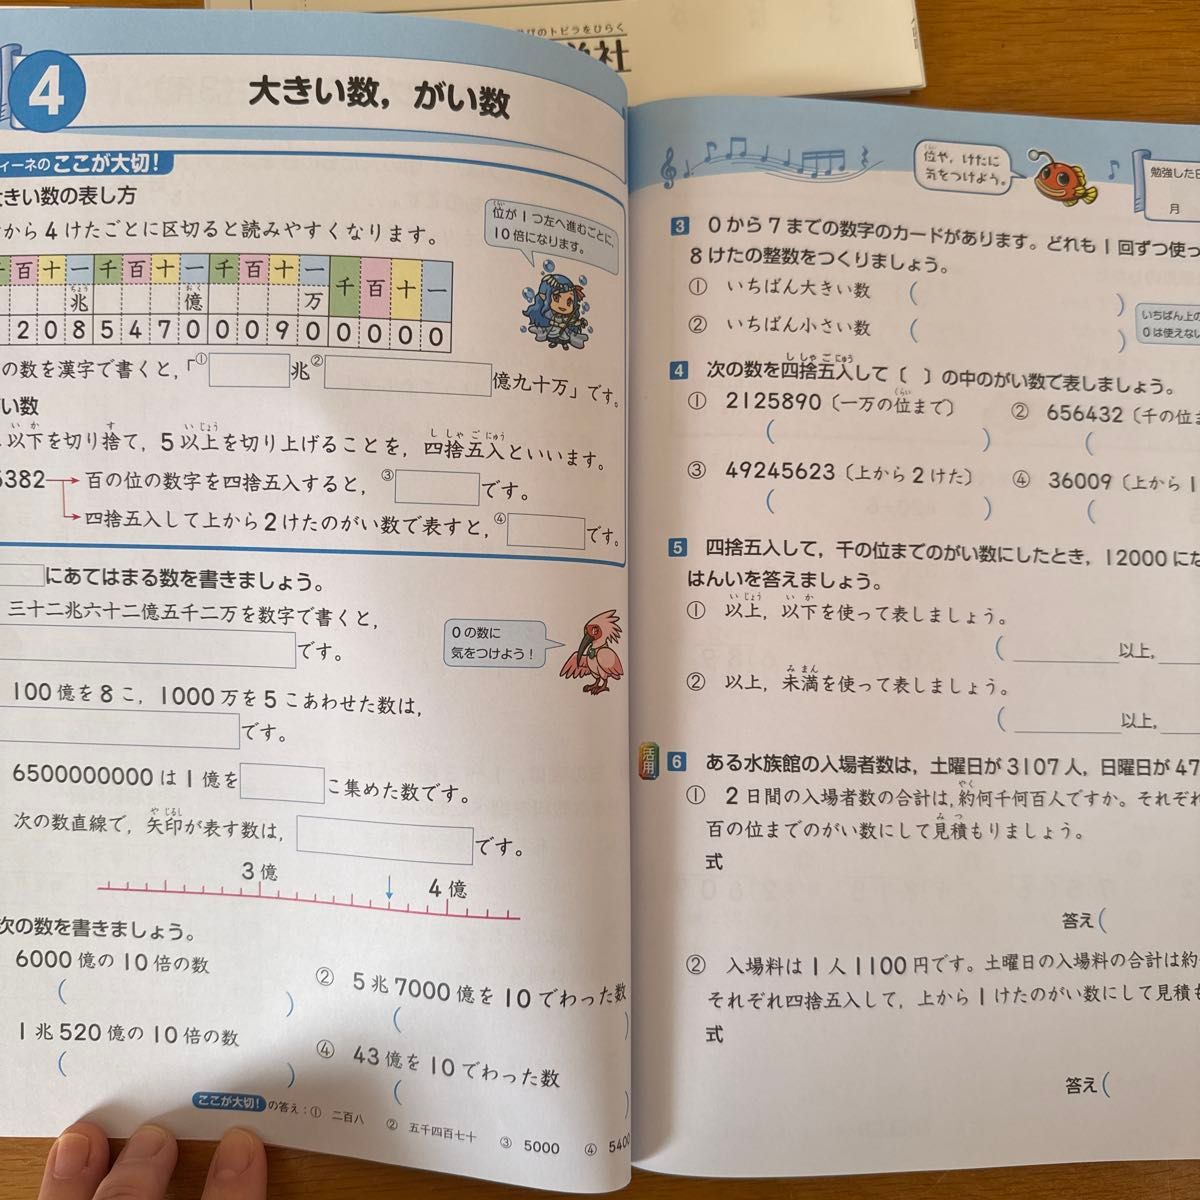 びのトビラをひらく
4
大きい数，がい数
ィーネの ここが大切！
大きい数の表し方
から4けたごとに区切ると読みやすくなります。
位が1つ左へ進むごとに、
10倍になります。
千 百 十 一 千 百 十 一 千 百 十 一 千 百 十 一
兆 億 万
2 0 8 5 4 7 0 0 0 9 0 0 0 0 0
の数を漢字で書くと，「① 兆② 億九十万」です。
がい数
以下を切り捨て，5以上を切り上げることを，四捨五入といいます。
5382 百の位の数字を四捨五入すると，③ です。
四捨五入して上から2けたのがい数で表すと，④ です。
にあてはまる数を書きましょう。
三十二兆六十二億五千二万を数字で書くと，
です。
0の数に
気をつけよう！
100億を8こ，1000万を5こあわせた数は，
です。
6500000000は1億を こ集めた数です。
次の数直線で，矢印が表す数は， です。
3億 4億
次の数を書きましょう。
6000億の10倍の数
② 5兆7000億を10でわった数
( ) ( )
1兆520億の10倍の数
④ 43億を10でわった数
( ) ( )
ここが大切！の答え：① 二百八 ② 五千四百七十 ③ 5000 ④ 5400
位や，けたに
気をつけよう。
勉強した日
月
3 0から7までの数字のカードがあります。どれも1回ずつ使っ
8けたの整数をつくりましょう。
① いちばん大きい数 ( )
② いちばん小さい数 ( )
いちばん上の
0は使えない
4 次の数を四捨五入して〔 〕の中のがい数で表しましょう。
① 2125890〔一万の位まで〕 ② 656432〔千の位ま
( ) (
③ 49245623〔上から2けた〕 ④ 36009〔上から1
( ) (
5 四捨五入して，千の位までのがい数にしたとき，12000にな
はんいを答えましょう。
① 以上，以下を使って表しましょう。
( 以上，
② 以上，未満を使って表しましょう。
( 以上，
活用 6 ある水族館の入場者数は，土曜日が3107人，日曜日が47
① 2日間の入場者数の合計は，約何千何百人ですか。それぞれ
百の位までのがい数にして見積もりましょう。
式
答え(
② 入場料は1人1100円です。土曜日の入場料の合計は約
それぞれ四捨五入して，上から1けたのがい数にして見積も
式
答え(